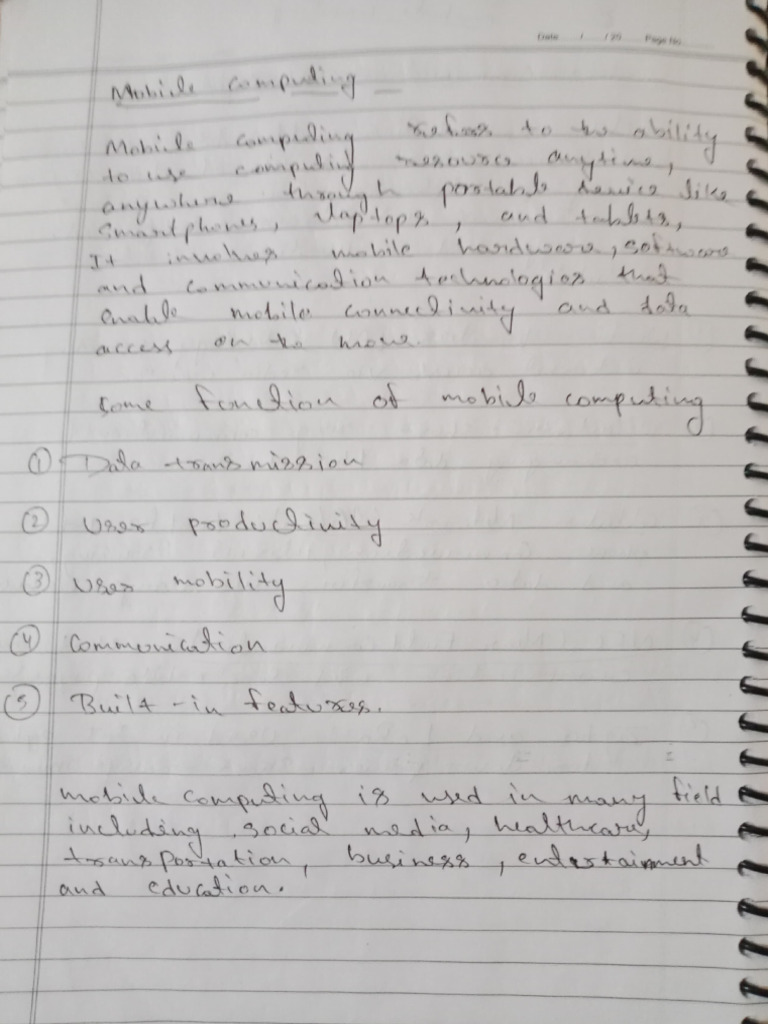 Date / /20 Page No.
Mobile computing -
Mobile computing refers to the ability
to use computing resources anytime,
anywhere through portable device like
smartphones, laptops, and tablets,
It involves mobile hardware, software
and communication technologies that
enable mobile connectivity and data
access on the move.
Some function of mobile computing
① Data transmission
② User productivity
③ User mobility
④ Communication
⑤ Built-in features.
mobile computing is used in many field
including, social media, healthcare,
transportation, business, entertainment
and education.